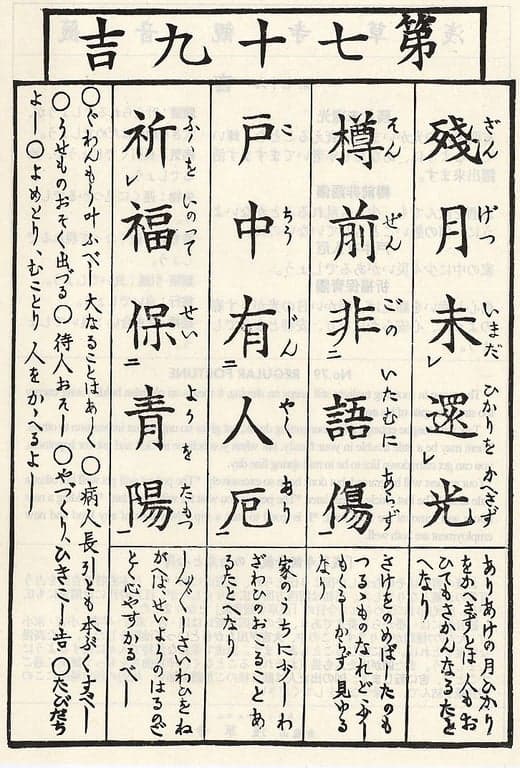 第七十九吉
殘月未還光
ざんげついまだひかりをかへさず
樽前非語傷
そんぜんごのいたみにあらず
戸中有人厄
こちうじんやくあり
祈福保青陽
ふくをいのってせいようをたもつ
ありあけの月ひかり
をかへさずとは人もお
もさかんなるたと
へなり
さけをのめばうたのも
見ゆる
なり
家のうちに
ざわひのおこることあ
るたとへなり
さいわひをね
がはゞせいようのはるのご
とく心やすかるべし
○ぐわんもう叶ふべし 大なることはあしく ○病人長引とも本ぶくすべし
○うせものおそく出づる○待人おそし ○やづくりひきこし吉 ○たびだち
よし ○よめとり、むことり 人をかゝへるよし